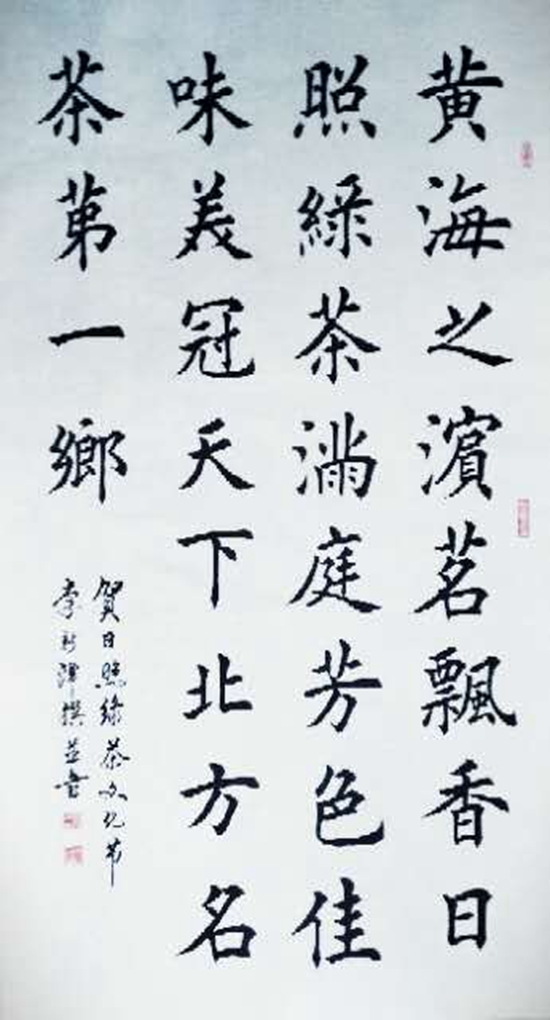 黄海之濱茗飄香日
照綠茶滿庭芳色佳
味美冠天下北方名
茶第一鄉
賀日照綠茶文化节
李新澤撰並書